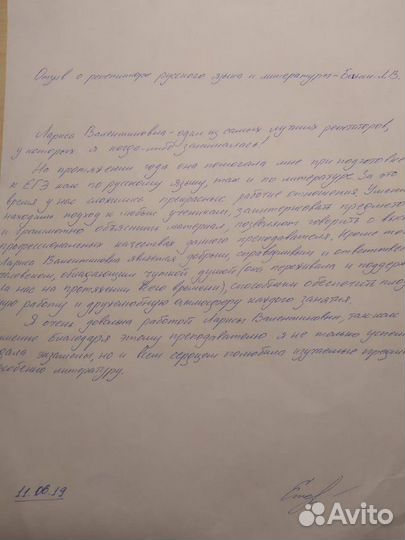 Отзыв о репетиторе русского языка и литературы – Л.В.
Лариса Валентиновна – один из самых лучших репетиторов,
у которых я когда-либо занималась!
На протяжении года она помогала мне при подготовке
к ЕГЭ как по русскому языку, так и по литературе. За это
время у нас сложились прекрасные рабочие отношения. Умение
находить подход к любым ученикам, заинтересовать предметом
и грамотно объяснить материал, позволяют говорить о высо
профессиональных качествах данного преподавателя. Кроме то
Лариса Валентиновна является добрым, справедливым и ответстве
человеком, обладающим чуткой душой (она переживала и поддерж
ла нас на протяжении всего времени), способным обеспечить плод
ую работу и дружелюбную атмосферу каждого занятия.
Я очень довольна работой Ларисы Валентиновны, так как
именно благодаря этому преподавателю я не только успешн
дала экзамены, но и всем сердцем полюбила изучаемые предме
собенно литературу.
11.06.19
Avito